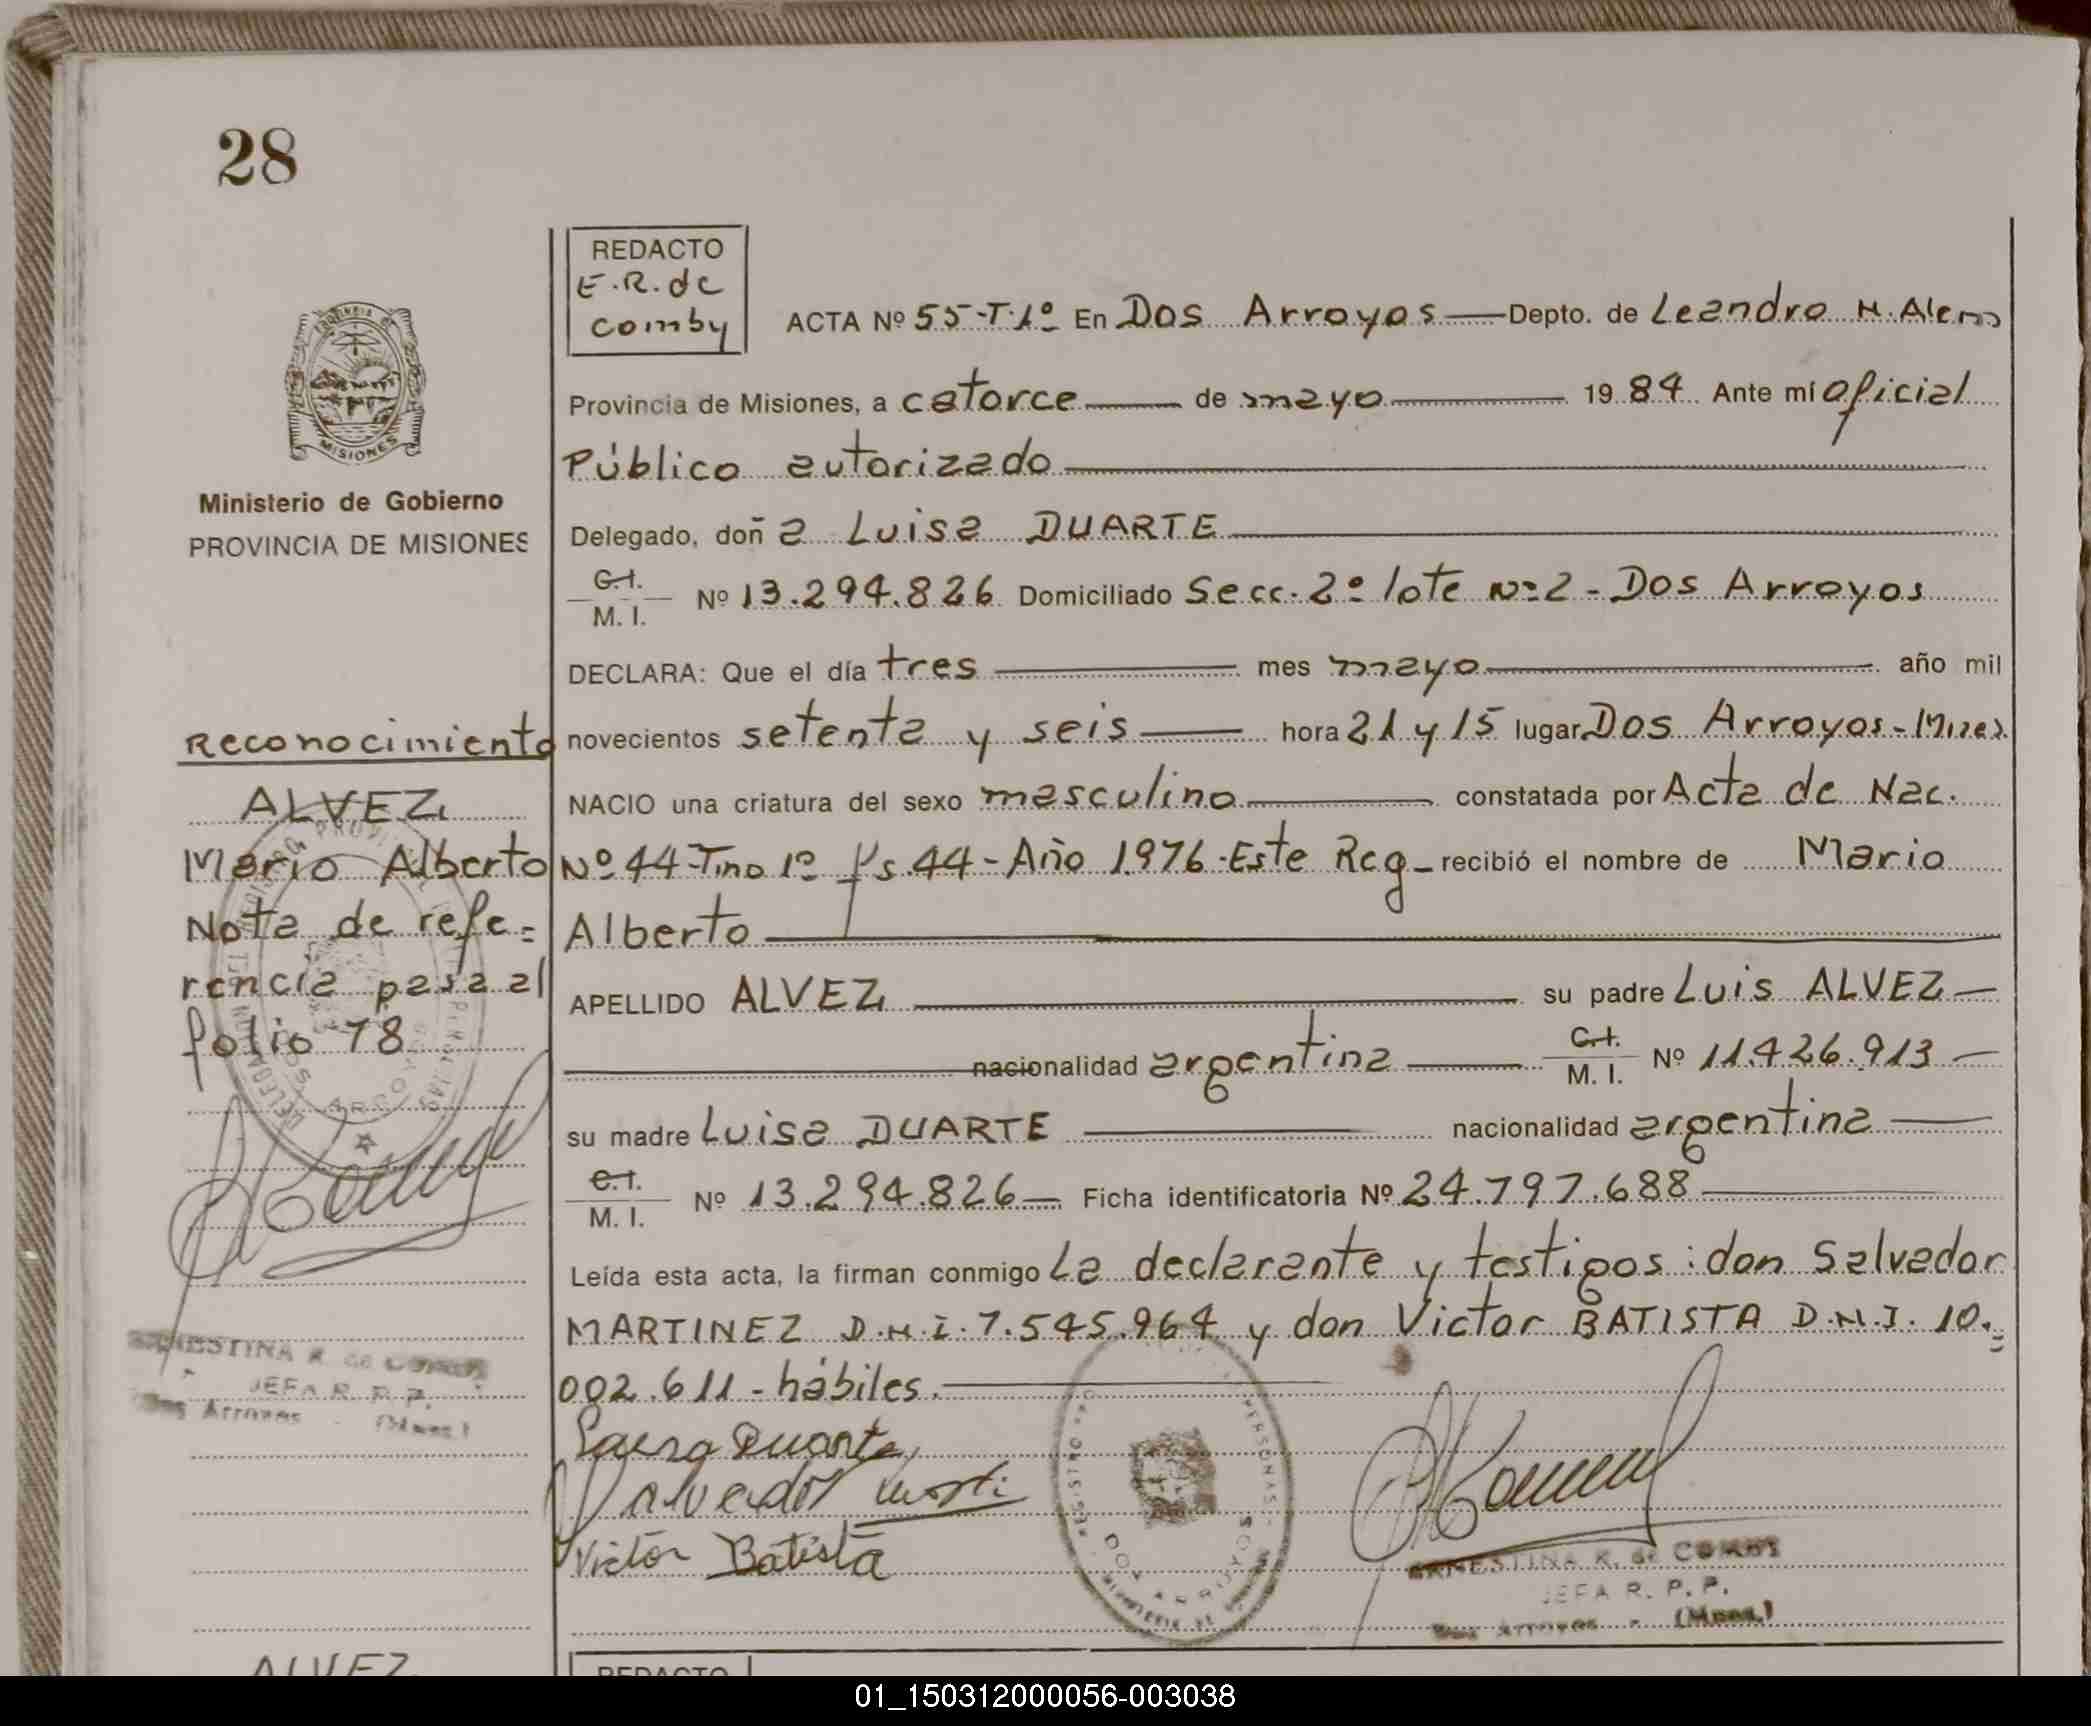 28
REDACTO
E.R. de
comby
ACTA Nº 55-T.1º En Dos Arroyos Depto. de Leandro N. Alem
Provincia de Misiones, a catorce de mayo 1984. Ante mí oficial
Público autorizado
Delegado, doña Luisa DUARTE
C.I.
M. I. Nº 13.294.826 Domiciliado Secc. 2º lote Nº 2 - Dos Arroyos
DECLARA: Que el día tres mes mayo año mil
novecientos setenta y seis hora 21 y 15 lugar Dos Arroyos - Mnes.
NACIO una criatura del sexo masculino constatada por Acta de Nac.
Nº 44-Tmo 1º fs. 44 - Año 1.976 - Este Reg - recibió el nombre de Mario
Alberto
APELLIDO ALVEZ su padre Luis ALVEZ
nacionalidad argentina C.I.
M. I. Nº 11.426.913
su madre Luisa DUARTE nacionalidad argentina
C.I.
M. I. Nº 13.294.826 Ficha identificatoria Nº 24.797.688
Leída esta acta, la firman conmigo La declarante y testigos: don Salvador
MARTINEZ D.N.I. 7.545.964 y don Victor BATISTA D.N.I. 10.=
002.611 - hábiles.
Duarte
Salvador
Victor Batista
ERNESTINA R. de COMBY
JEFA R. P. P.
Dos Arroyos - (Mnes.)
PROVINCIA DE
MISIONES
Ministerio de Gobierno
PROVINCIA DE MISIONES
Reconocimiento
ALVEZ
Mario Alberto
Nota de refe=
rencia pasa al
folio 78
ERNESTINA R. de COMBY
JEFA R. P. P.
Dos Arroyos - (Mnes.)
ALVEZ
REDACTO
DOS ARROYOS
01_150312000056-003038